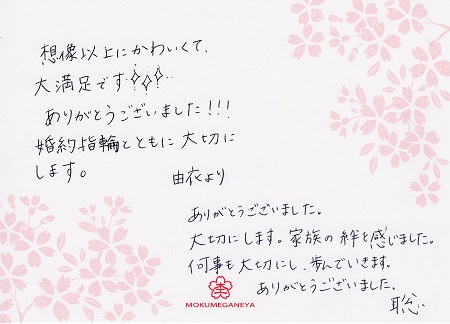 想像以上にかわいくて、
大満足です
ありがとうございました!!!
婚約指輪とともに大切に
します。
由衣より
ありがとうございました。
大切にします。家族の絆を感じました。
何事も大切にし、歩んでいきます。
ありがとうございました。
聡
MOKUMEGANEYA